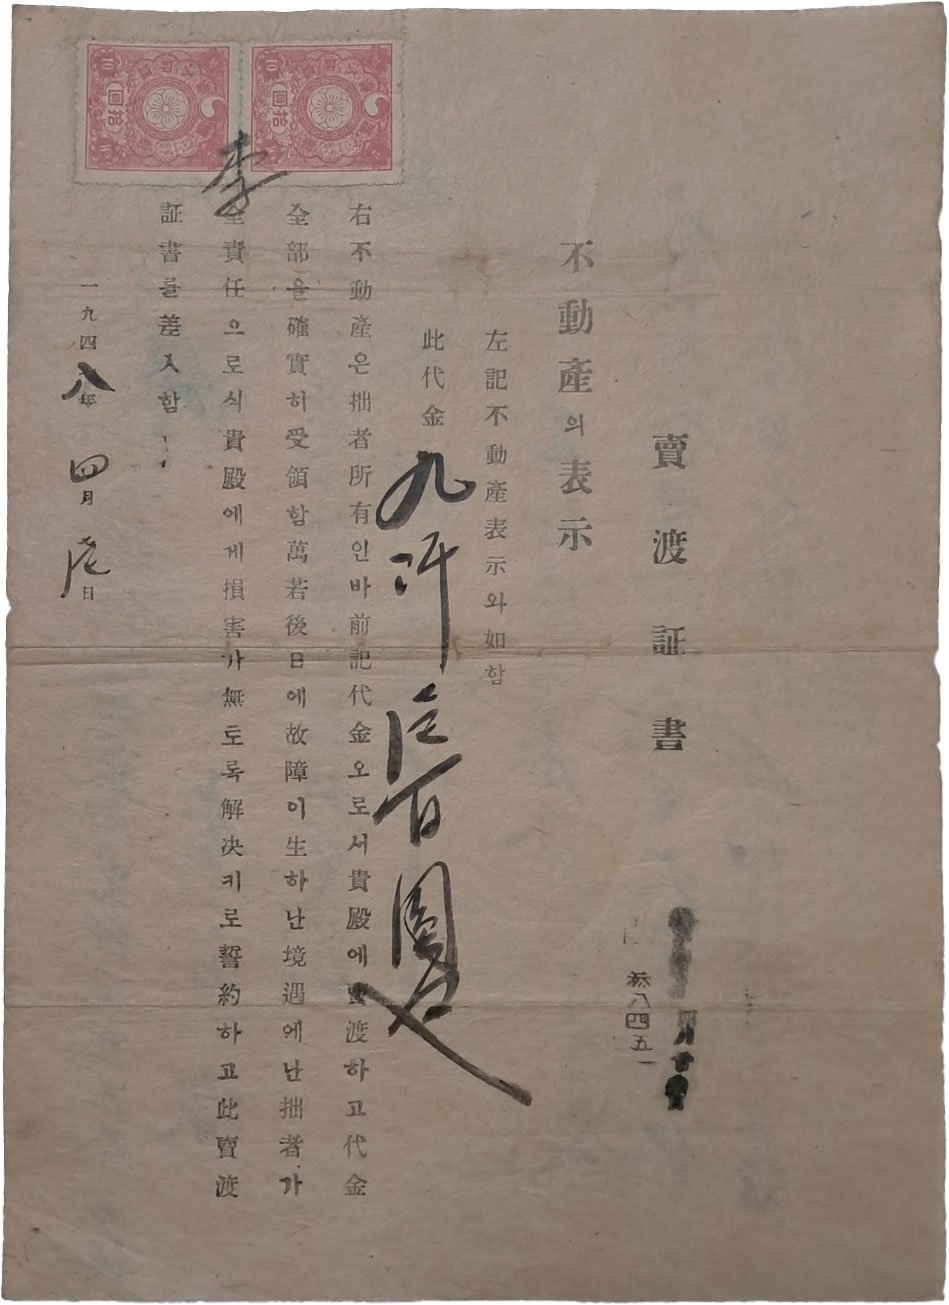 賣渡証書
參八四五一
不動產의表示
左記不動產表示와如함
此代金九阡百圓也
右不動產은拙者所有인바前記代金오로서貴殿에賣渡하고代金
全部을確實히受領함萬若後日에故障이生하난境遇에난拙者가
全責任으로식貴殿에게損害가無토록解決키로誓約하고此賣渡
証書를差入함
一九四八年四月日
李
拾圓
拾圓